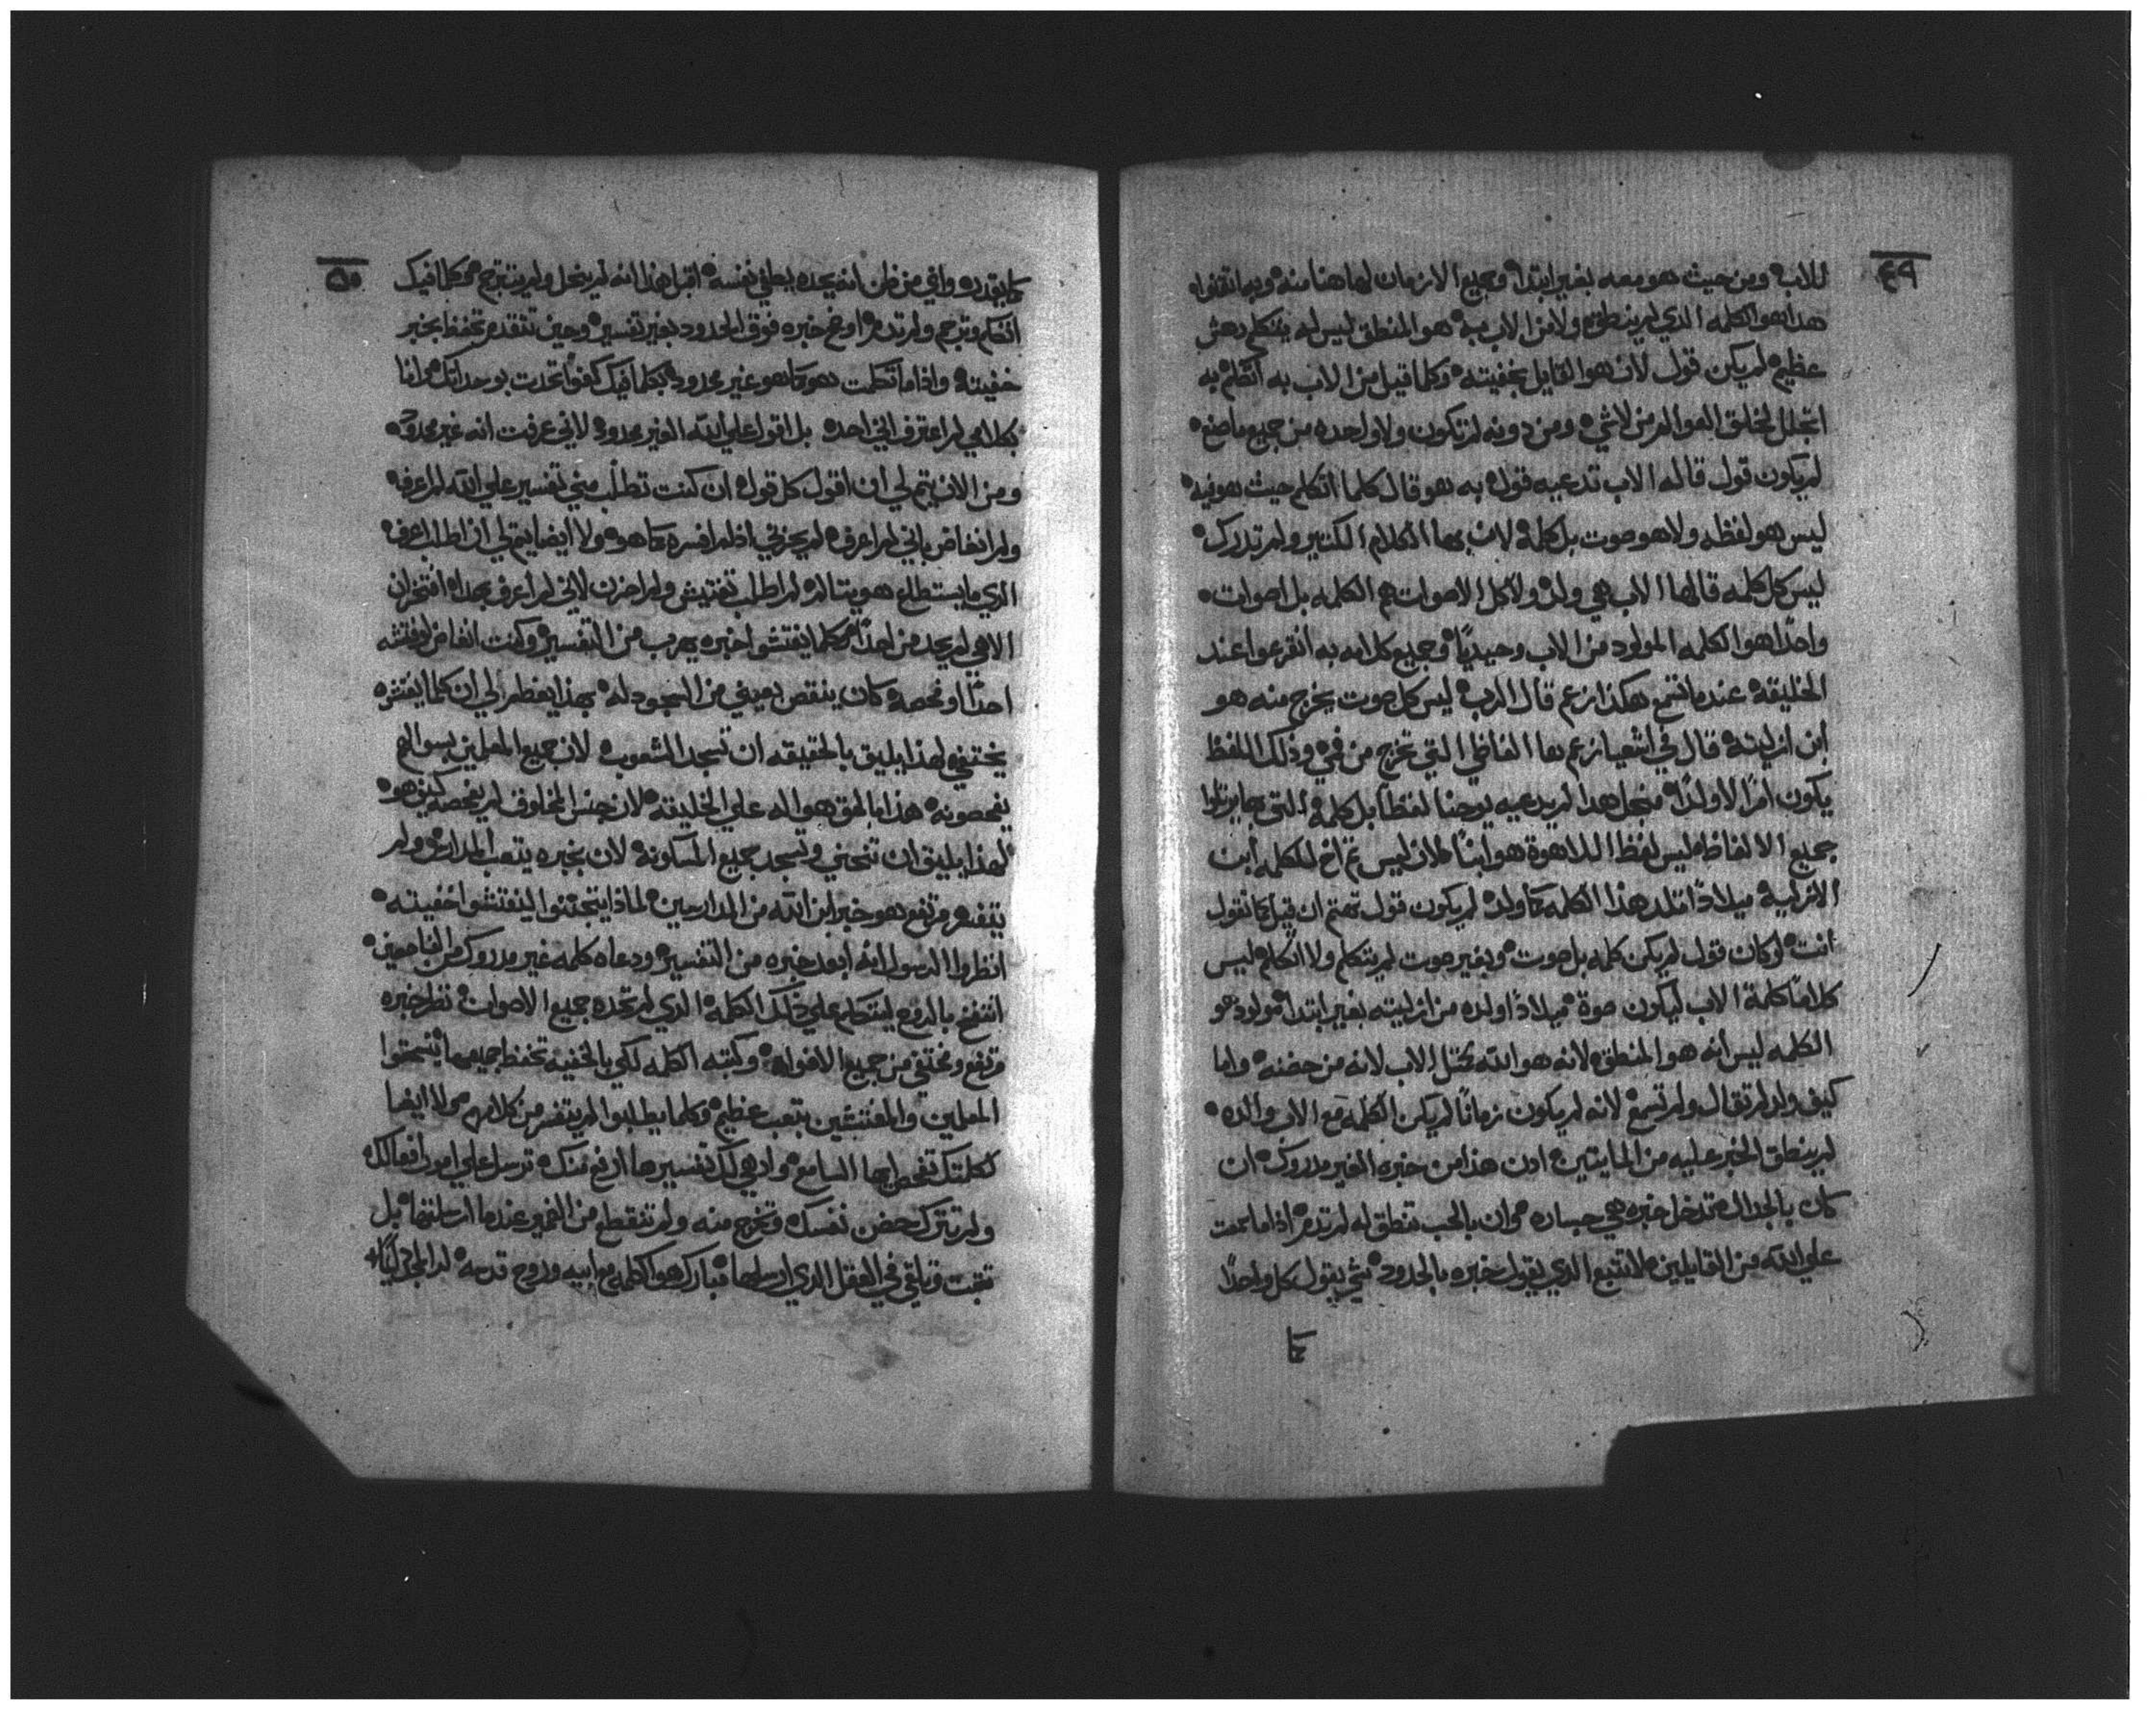 ٤٩
للاب ومن حيث هو معه بغير ابتدا وجميع الازمان لها هنا منه وبها تقنوا
هذا هو الكلمه الدي لم ينطق ولا من الاب به هو المنطق ليس له يتكلم دهش
عظيم لم يكن قول لان هو القايل بخفيته وكلما قيل من الاب به اتكلم به
انجبل لخلق العوالم من لاشي ومن دونه لم تكون ولا واحده من جميع ما صنع
لم يكون قول قاله الاب تدعيه قول به هو قال كلما اتكلم حيث هو فيه
ليس هو لفظه ولا هو صوت بل كلمة لان بها الكلام الكتير ولم تدرك
ليس كل كلمه قالها الاب هي ولد ولا كل الاصوات هم الكلمه بل اصوات
واحدًا هو الكلمه المولود من الاب وحيديًا وجميع كلامه به انقرعوا عند
الخليقة عندما تسمع هكذا زعم قال الرب ليس كل صوت يخرج منه هو
ابن ازليته قال في اشعيا زعم بها الفاظي التي تخرج من فمي وذلك اللفظ
يكون امرًا لا ولدًا منجل هدا لم يدعيه يوحنا لفظًا بل كلمة التي بها يرتلوا
جميع الالفاظ ليس لفظ اللاهوة هو ابنًا لان ليس تم اخ للكلمه ابن
الازلية ميلادًا اتلد هذا الكلمه كما ولد لم يكون قول تهتم ان قيل كما نقول
انت لو كان قول لم يكن كلمه بل صوت وبغير صوت لم يتكلم ولا اتكلم ليس
كلامًا كلمة الاب ليكون صوة ميلادًا اولده من ازليته بغير ابتدا مولود هو
الكلمه ليس انه هو المنطق لانه هو الله مثل الاب لانه من حضنه واما
كيف ولد لم تقال ولم تسمع لانه لم يكون زمانًا لم يكن الكلمه مع الاب والده
لم ينطق الخبر عليه من المايتين ادن هذا من خبره الغير مدروك ان
كان بالجدال تدخل خبره هي جساره وان بالحب تنطق له لم تدم اذا ما سمعت
علي الله من القايلين لا تتبع الدي يقول خبره بالحدود شي يقول كل واحدًا
كما
٥٠
كما يقدره واني من ظن انه يحده يطغي نفسه اقبل هذا انه لم ينحل ولم يترجم كلما فيك
اتكلم وترجم ولم تدم اوضح خبره فوق الحدود بغير تفسير وحين تتقدم تحفظ بخبر
خفيته واذا ما تكلمت هو كما هو غير محدود بكلما فيك كفوًا تحدت بوحدانيتك انا
بكلامي لم اعترف اني احده بل اقول علي الله الغير محدود لاني عرفت انه غير محدود
ومن الان يتم لي ان اقول كل قول ان كنت تطلب مني تفسير علي الله لم اعرف
ولم انغاض باني لم اعرف لم يحزني اذ لم افسره كما هو ولا ايضا يتم لي ان اطلب اعرف
الدي ما يستطاع هو يتاله لم اطلب تفتيش ولم احزن لاني لم اعرف بهدا افتخر ان
الاهي لم يحد من احدًا وكلما يفتشوا خبره يهرب من التفسير وكنت انغاض لو فتشه
احدًا او فحصه كان ينقص بعيني من السجود له بهذا يعظم لي ان كلما يفتشوه
يختفي لهذا يليق بالحقيقه ان تسجد الشعوب لان جميع المعلين بسوالهم
يفحصونه هذا بالحق هو اله علي الخليقه لان جنس المخلوق لم يفحصه كيف هو
لهذا يليق ان تنحني وتسجد جميع المسكونة لان بخبره يتعب المدارس ولم
يتفسر مرتفع هو خبر ابن الله من المدارسين لماذا يتجننوا ليفتشوا خفيته
انظروا الرسول انه ابعد خبره من التفسير ودعاه كلمه غير مدروك من الفاحصين
انتفخ بالروح ليتكلم علي ذلك الكلمه الدي لم تحده جميع الاصوات نظر خبره
مرتفع ومختفي من جميع الافواه وكتبه الكلمه لكي بالخفية تحفظ جميعها يتسحقوا
المعلين والمفتشين بتعب عظيم وكلما يطلبوا لم يتفسر من كلامهم ولا ايضا
كلمتك تفحص ايها السامع وان هي لك تفسيرها ارفع منك ترسل علي امور افعالك
ولم تترك حضن نفسك وتخرج منه ولم تنقطع من الضمير عندما ارسلتها بل
تثبت وتلقي في العقل الدي ارسلها مبارك هو الكلمه مع ابيه وروح قدسه له المجد